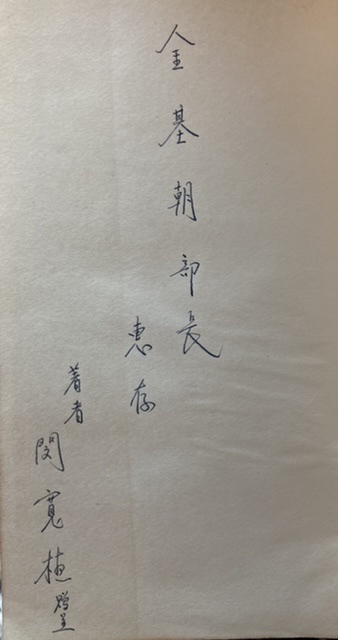 金基朝部長
惠存
著者
閔寬植贈呈